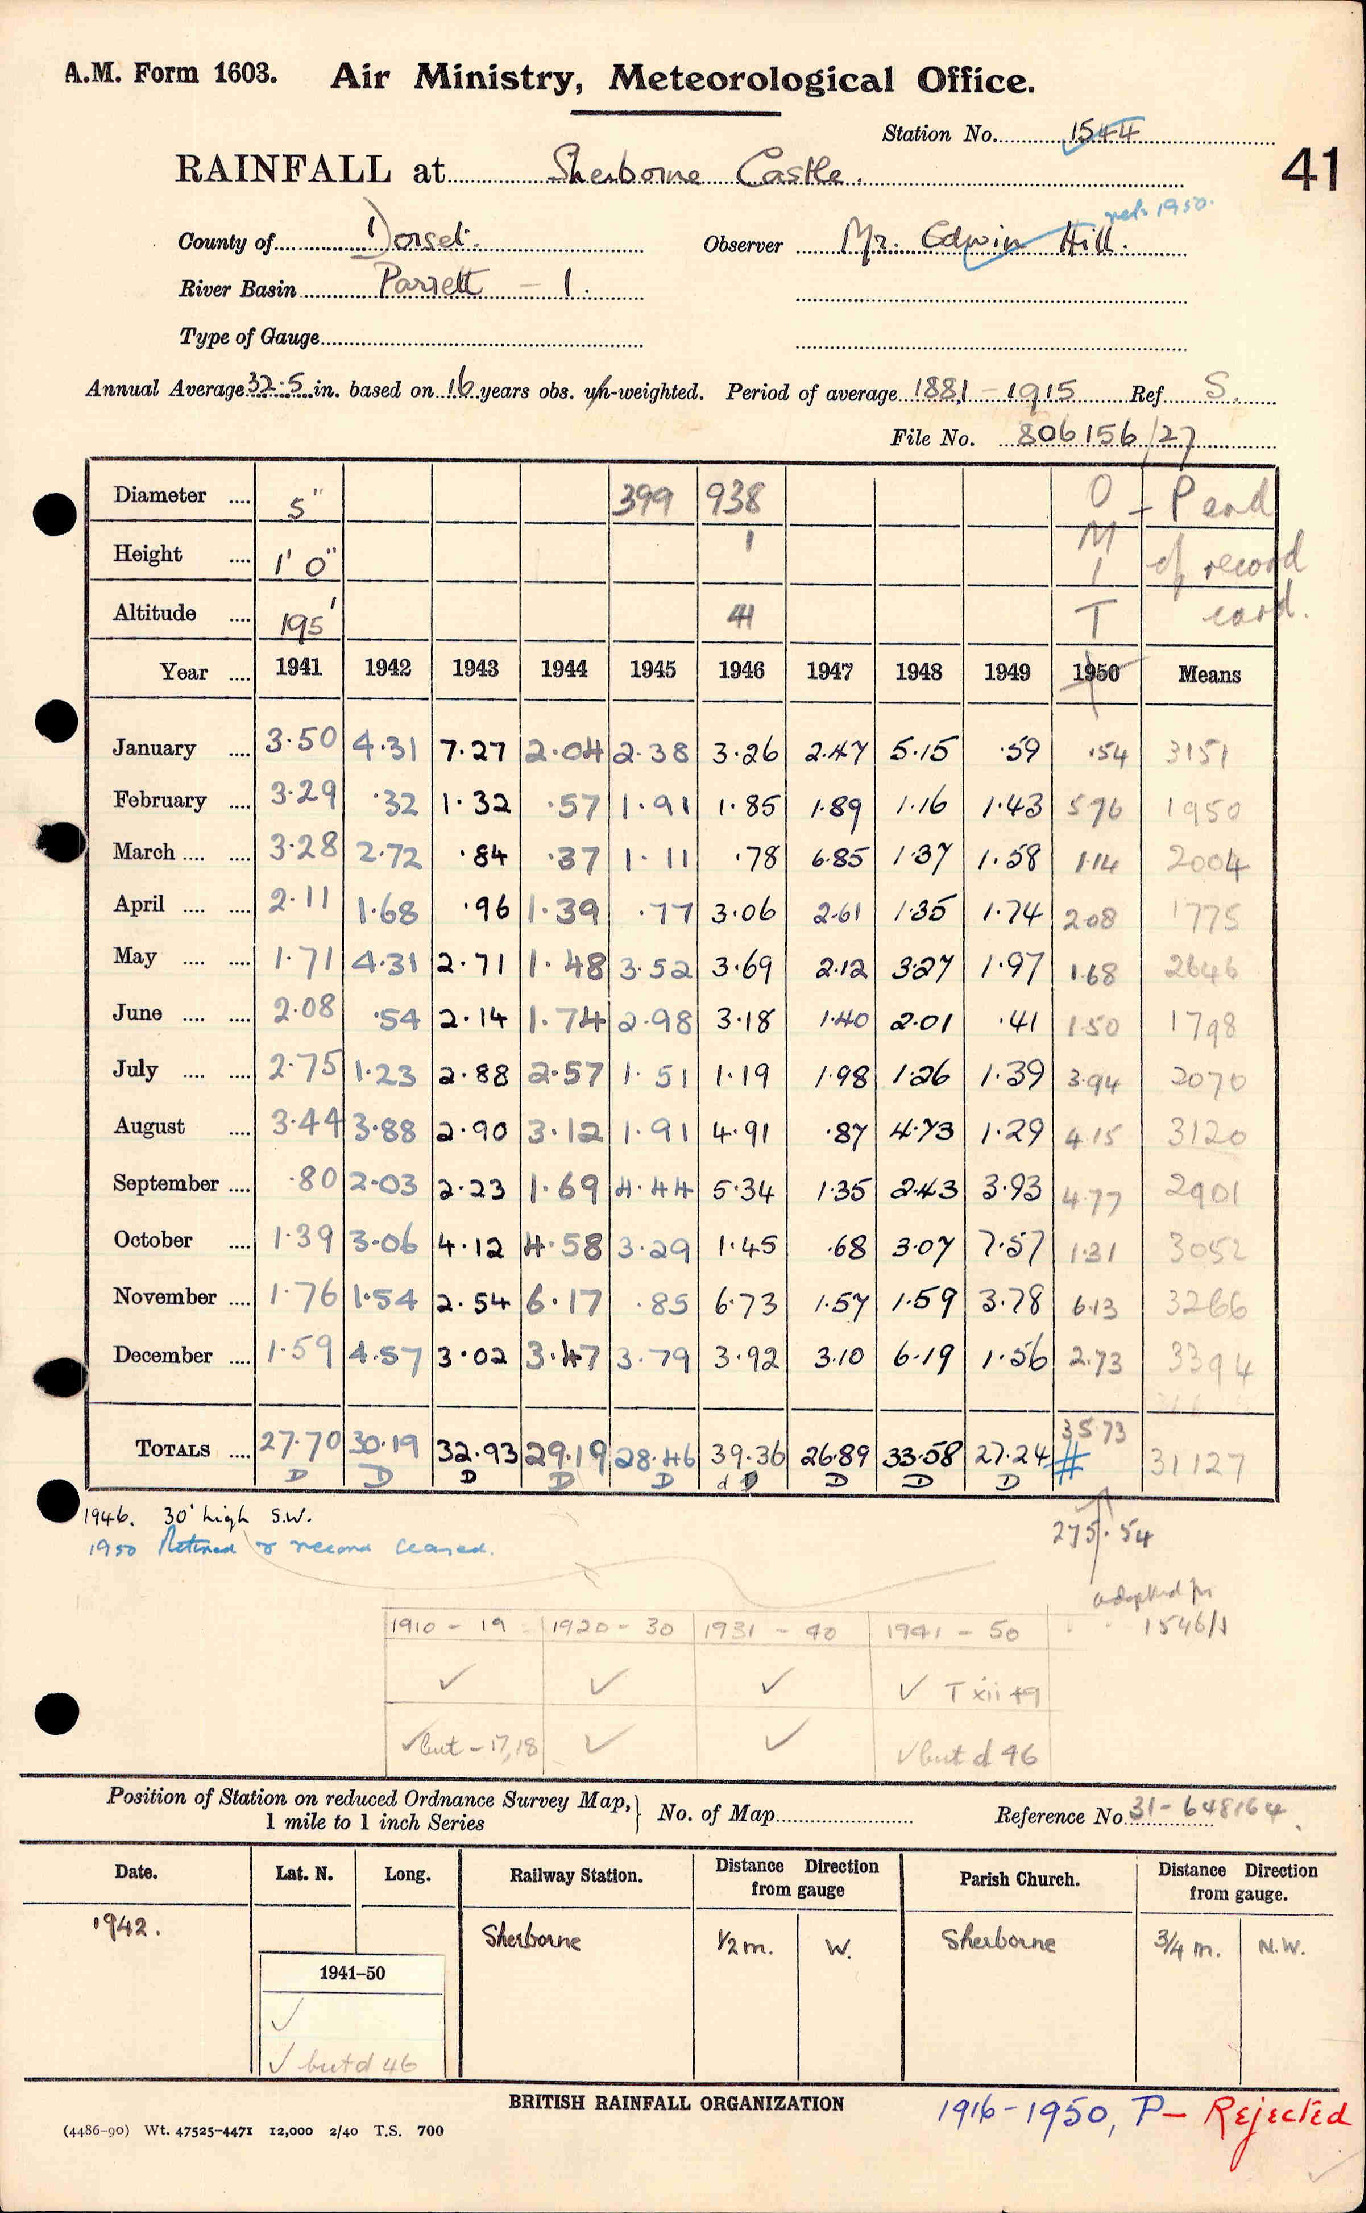 A.M. Form 1603. Air Ministry, Meteorological Office.
Station No. 1544
41
RAINFALL at Sherborne Castle.
ret. 1950.
County of Dorset. Observer Mr. Edwin Hill.
River Basin Parrett – 1.
Type of Gauge
Annual Average 32.5 in. based on 16 years obs. un-weighted. Period of average 1881–1915 Ref S.
File No. 806156/27
Diameter .... 5" 399 938 O – P end
Height .... 1' 0" 1 M I of record
Altitude .... 195' 41 T card.
Year .... 1941 1942 1943 1944 1945 1946 1947 1948 1949 1950 Means
January .... 3.50 4.31 7.27 2.04 2.38 3.26 2.47 5.15 .59 .54 3151
February .... 3.29 .32 1.32 .57 1.91 1.85 1.89 1.16 1.43 5.76 1950
March .... .... 3.28 2.72 .84 .37 1.11 .78 6.85 1.37 1.58 1.14 2004
April .... .... 2.11 1.68 .96 1.39 .77 3.06 2.61 1.35 1.74 2.08 1775
May .... .... 1.71 4.31 2.71 1.48 3.52 3.69 2.12 3.27 1.97 1.68 2646
June .... .... 2.08 .54 2.14 1.74 2.98 3.18 1.40 2.01 .41 1.50 1798
July .... .... 2.75 1.23 2.88 2.57 1.51 1.19 1.98 1.26 1.39 3.94 2070
August .... 3.44 3.88 2.90 3.12 1.91 4.91 .87 4.73 1.29 4.15 3120
September .... .80 2.03 2.23 1.69 4.44 5.34 1.35 2.43 3.93 4.77 2901
October .... 1.39 3.06 4.12 4.58 3.29 1.45 .68 3.07 7.57 1.31 3052
November .... 1.76 1.54 2.54 6.17 .85 6.73 1.57 1.59 3.78 6.13 3266
December .... 1.59 4.57 3.02 3.47 3.79 3.92 3.10 6.19 1.56 2.73 3394
TOTALS .... 27.70 30.19 32.93 29.19 28.46 39.36 26.89 33.58 27.24 35.73 31127
D D D D D d D D D D #
1946. 30' high S.W.
1950 Retired & record ceased.
275.54
adopted for
1546/1
1910 – 19 1920 – 30 1931 – 40 1941 – 50
✓ ✓ ✓ ✓ T xii 49
✓ but – 17, 18 ✓ ✓ ✓ but d 46
Position of Station on reduced Ordnance Survey Map, 1 mile to 1 inch Series } No. of Map Reference No. 31 – 648164.
Date. Lat. N. Long. Railway Station. Distance Direction from gauge Parish Church. Distance Direction from gauge.
1942. Sherborne 1/2 m. W. Sherborne 3/4 m. N.W.
1941–50
✓
✓ but d 46
BRITISH RAINFALL ORGANIZATION
1916–1950, P – Rejected
(4486-90) Wt. 47525-4471 12,000 2/40 T.S. 700